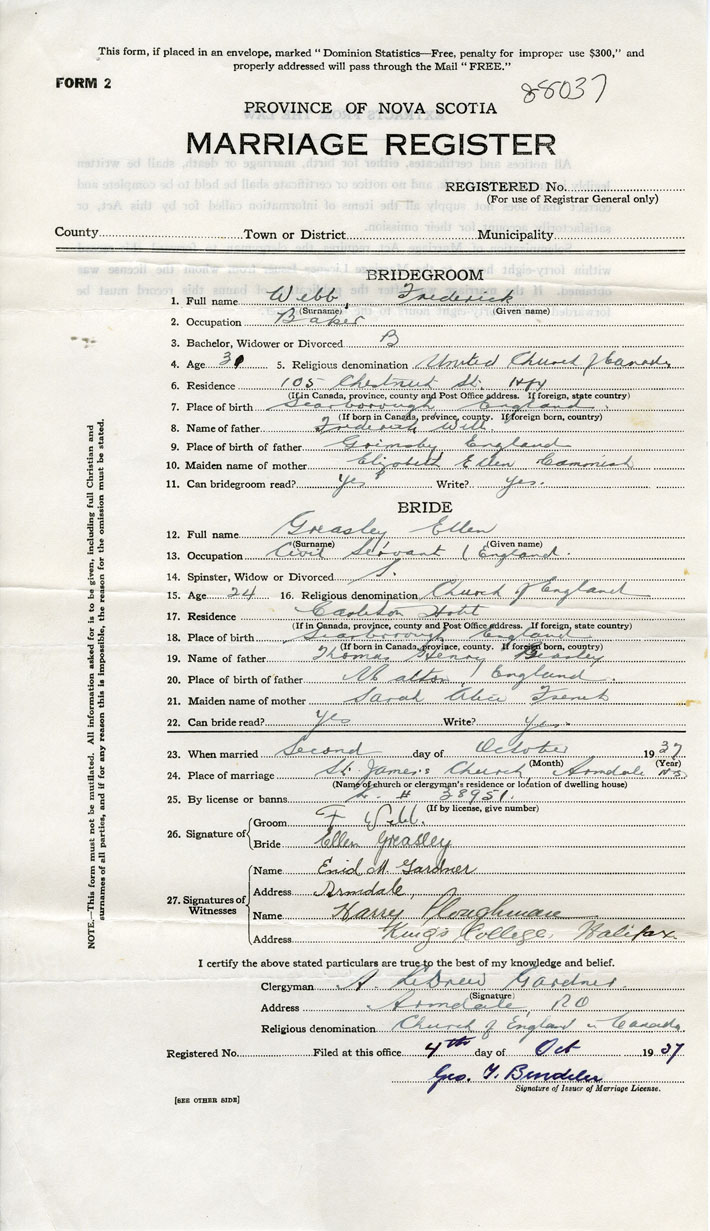 This form, if placed in an envelope, marked "Dominion Statistics—Free, penalty for improper use $300," and
properly addressed will pass through the Mail "FREE."
FORM 2
88037
PROVINCE OF NOVA SCOTIA
MARRIAGE REGISTER
REGISTERED No.
(For use of Registrar General only)
County Town or District Municipality
BRIDEGROOM
1. Full name Webb, Frederick
(Surname) (Given name)
2. Occupation Baker
3. Bachelor, Widower or Divorced B
4. Age 30 5. Religious denomination United Church of Canada
6. Residence 105 Chestnut St. Hfx
(If in Canada, province, county and Post Office address. If foreign, state country)
7. Place of birth Scarborough England
(If born in Canada, province, county. If foreign born, country)
8. Name of father Frederick Webb
9. Place of birth of father Grimsby England
10. Maiden name of mother Elizabeth Ellen
11. Can bridegroom read? Yes Write? yes.
BRIDE
12. Full name Greasley Ellen
(Surname) (Given name)
13. Occupation Civil Servant (England.
14. Spinster, Widow or Divorced S.
15. Age 24 16. Religious denomination Church of England
17. Residence Carleton Hotel
(If in Canada, province, county and Post Office address. If foreign, state country)
18. Place of birth Scarborough England
(If born in Canada, province, county. If foreign born, country)
19. Name of father Thomas Henry Greasley
20. Place of birth of father Malton, England
21. Maiden name of mother Sarah Alice French
22. Can bride read? Yes Write? yes.
23. When married Second day of October 1937
(Month) (Year)
24. Place of marriage St. James's Church, Armdale N.S.
(Name of church or clergyman's residence or location of dwelling house)
25. By license or banns L. # 38951.
(If by license, give number)
26. Signature of
Groom F Webb.
Bride Ellen Greasley
27. Signatures of Witnesses
Name Enid M. Gardner
Address Armdale,
Name Harry Ploughman
Address King's College, Halifax.
I certify the above stated particulars are true to the best of my knowledge and belief.
Clergyman A. LeDrew Gardner.
(Signature)
Address Armdale, PO
Religious denomination Church of England in Canada.
Registered No. Filed at this office 4th day of Oct 1937
Signature of Issuer of Marriage License.
[SEE OTHER SIDE]
NOTE.—This form must not be mutilated. All information asked for is to be given, including full Christian and
surnames of all parties, and if for any reason this is impossible, the reason for the omission must be stated.